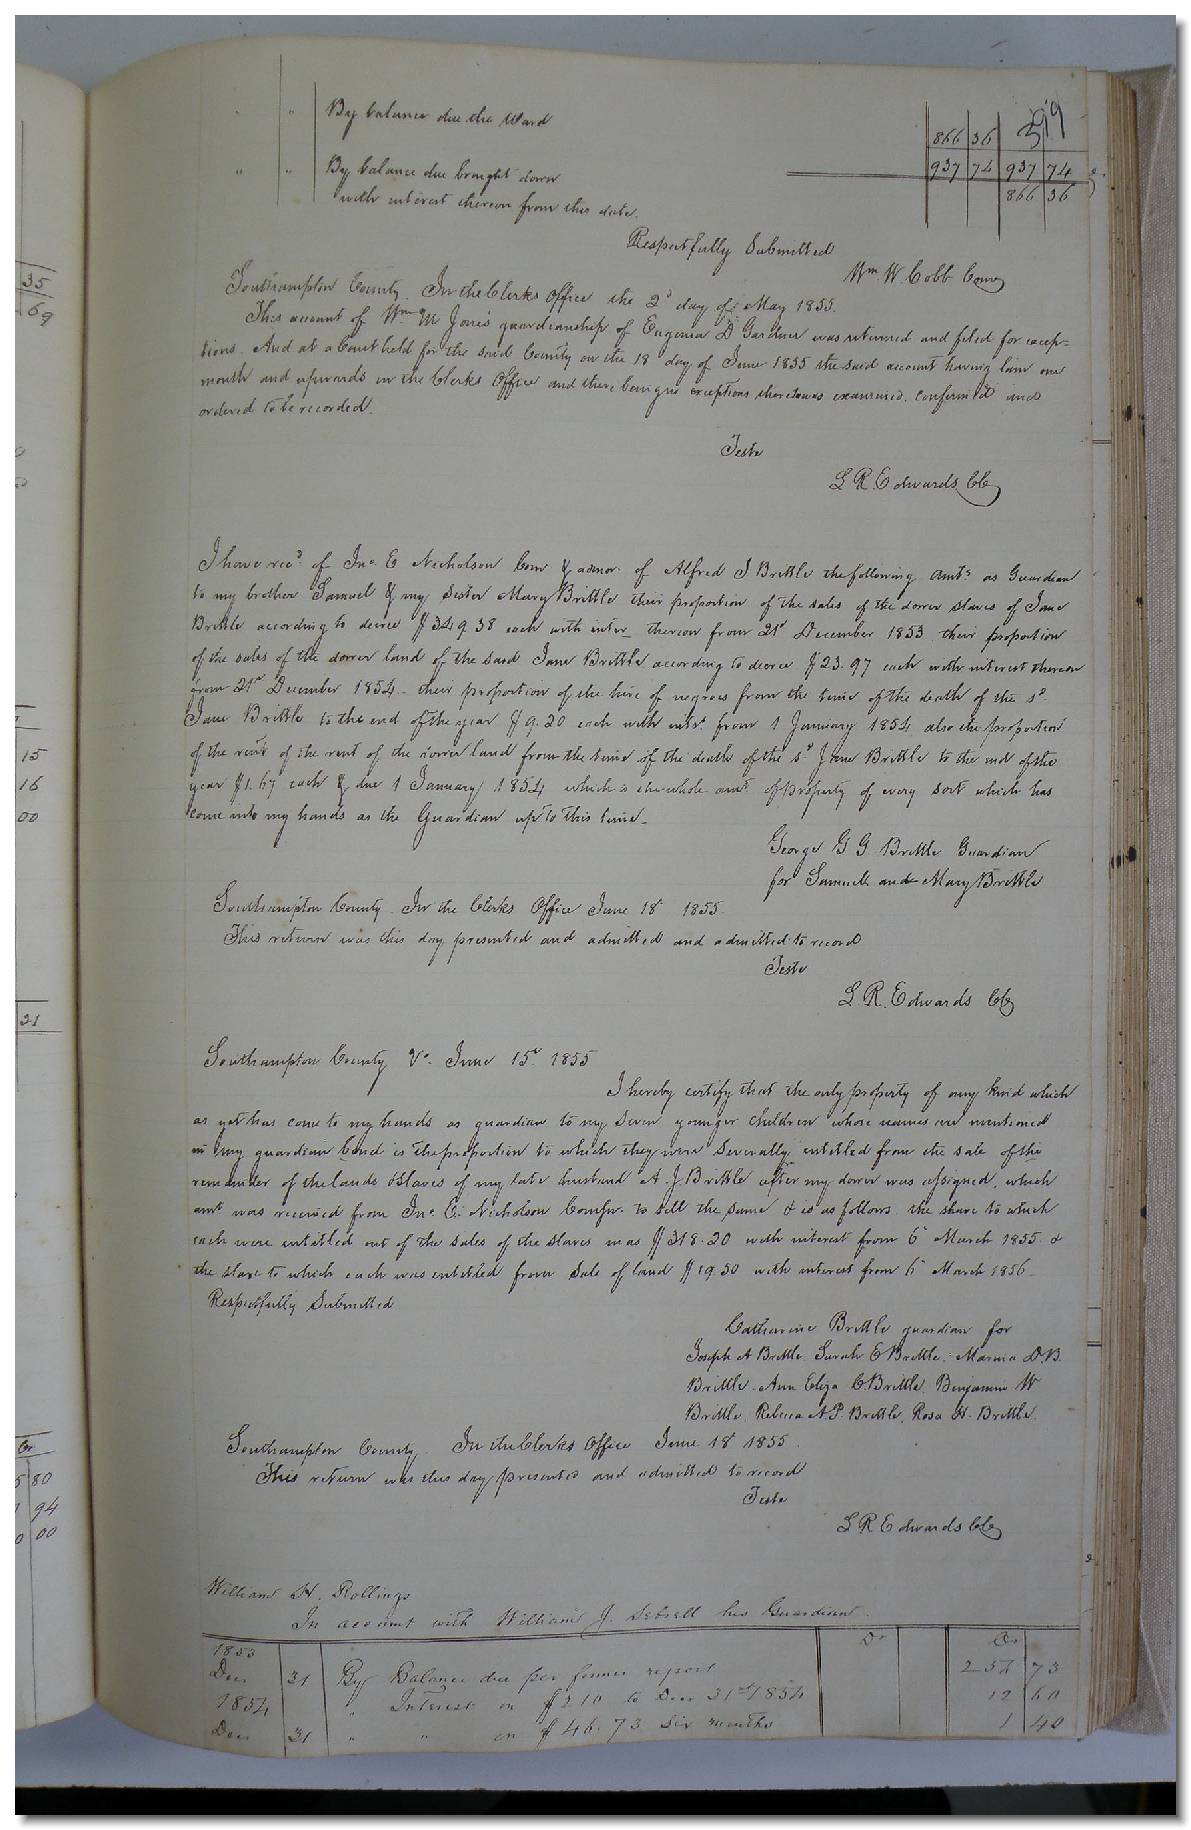 519
" " By balance due the Ward 866 36
937 74 937 74
" " By balance due brought down 866 36
with interest thereon from this date.
Respectfully Submitted
Wm. W. Cobb Comr
Southampton County. In the Clerks Office the 2d day of May 1855.
This account of Wm M Jones guardianship of Eugenia D Gardner was returned and filed for excep-
tions. And at a Court held for the said County on the 18 day of June 1855 the said account having lain one
month and upwards in the Clerks Office and there being no exceptions thereto was examined, confirmed and
ordered to be recorded.
Teste
L R. Edwards CC
I have recd of Jno. E Nicholson Comr & admor of Alfred J Brittle the following amts as Guardian
to my brother Samuel & my Sister Mary Brittle their proportion of the sales of the dower slaves of Jane
Brittle according to decree $349.38 each with inter thereon from 21st December 1853 their proportion
of the sales of the dower land of the said Jane Brittle according to decree $23.97 each with interest thereon
from 21st December 1854 - their proportion of the hire of negroes from the time of the death of the sd
Jane Brittle to the end of the year $9.20 each with intst from 1 January 1854 also the proportion
of the rent of the rent of the dower land from the time of the death of the sd Jane Brittle to the end of the
year $1.67 each & due 1 January 1854 which is the whole amt of property of every sort which has
come into my hands as the Guardian up to this time -
George G G Brittle Guardian
for Samuel and Mary Brittle
Southampton County. In the Clerks Office June 18 1855.
This return was this day presented and admitted and admitted to record
Teste
L. R. Edwards CC
Southampton County Va. June 15th 1855
I hereby certify that the only property of any kind which
as yet has come to my hands as guardian to my seven younger children whose names are mentioned
in my guardian bond is the proportion to which they were severally entitled from the sale of the
remainder of the lands & slaves of my late husband A. J Brittle after my dower was assigned, which
amt was received from Jno. E. Nicholson Comsr. to sell the same & is as follows the share to which
each were entitled out of the sales of the slaves was $318.20 with interest from 6th March 1855 &
the share to which each was entitled from sale of land $19.50 with interest from 6th March 1856 -
Respectfully Submitted
Catharine Brittle guardian for
Joseph A Brittle, Sarah E Brittle, D.B.
Brittle, Ann Eliza C Brittle, Benjamin W
Brittle, Rebecca A.P. Brittle, Rosa H. Brittle
Southampton County. In the Clerks Office June 18 1855.
This return was this day presented and admitted to record
Teste
L R Edwards CC
William H. Rollings
In account with William J. Sebrell his Guardian.
Dr Cr
1853
Decr 31 By Balance due per former report 254 73
1854 " Interest on $210 to Decr 31st 1854 12 60
Decr 31 " " on $46.73 six months 1 40
35
69
15
16
00
21
Cr
80
94
00